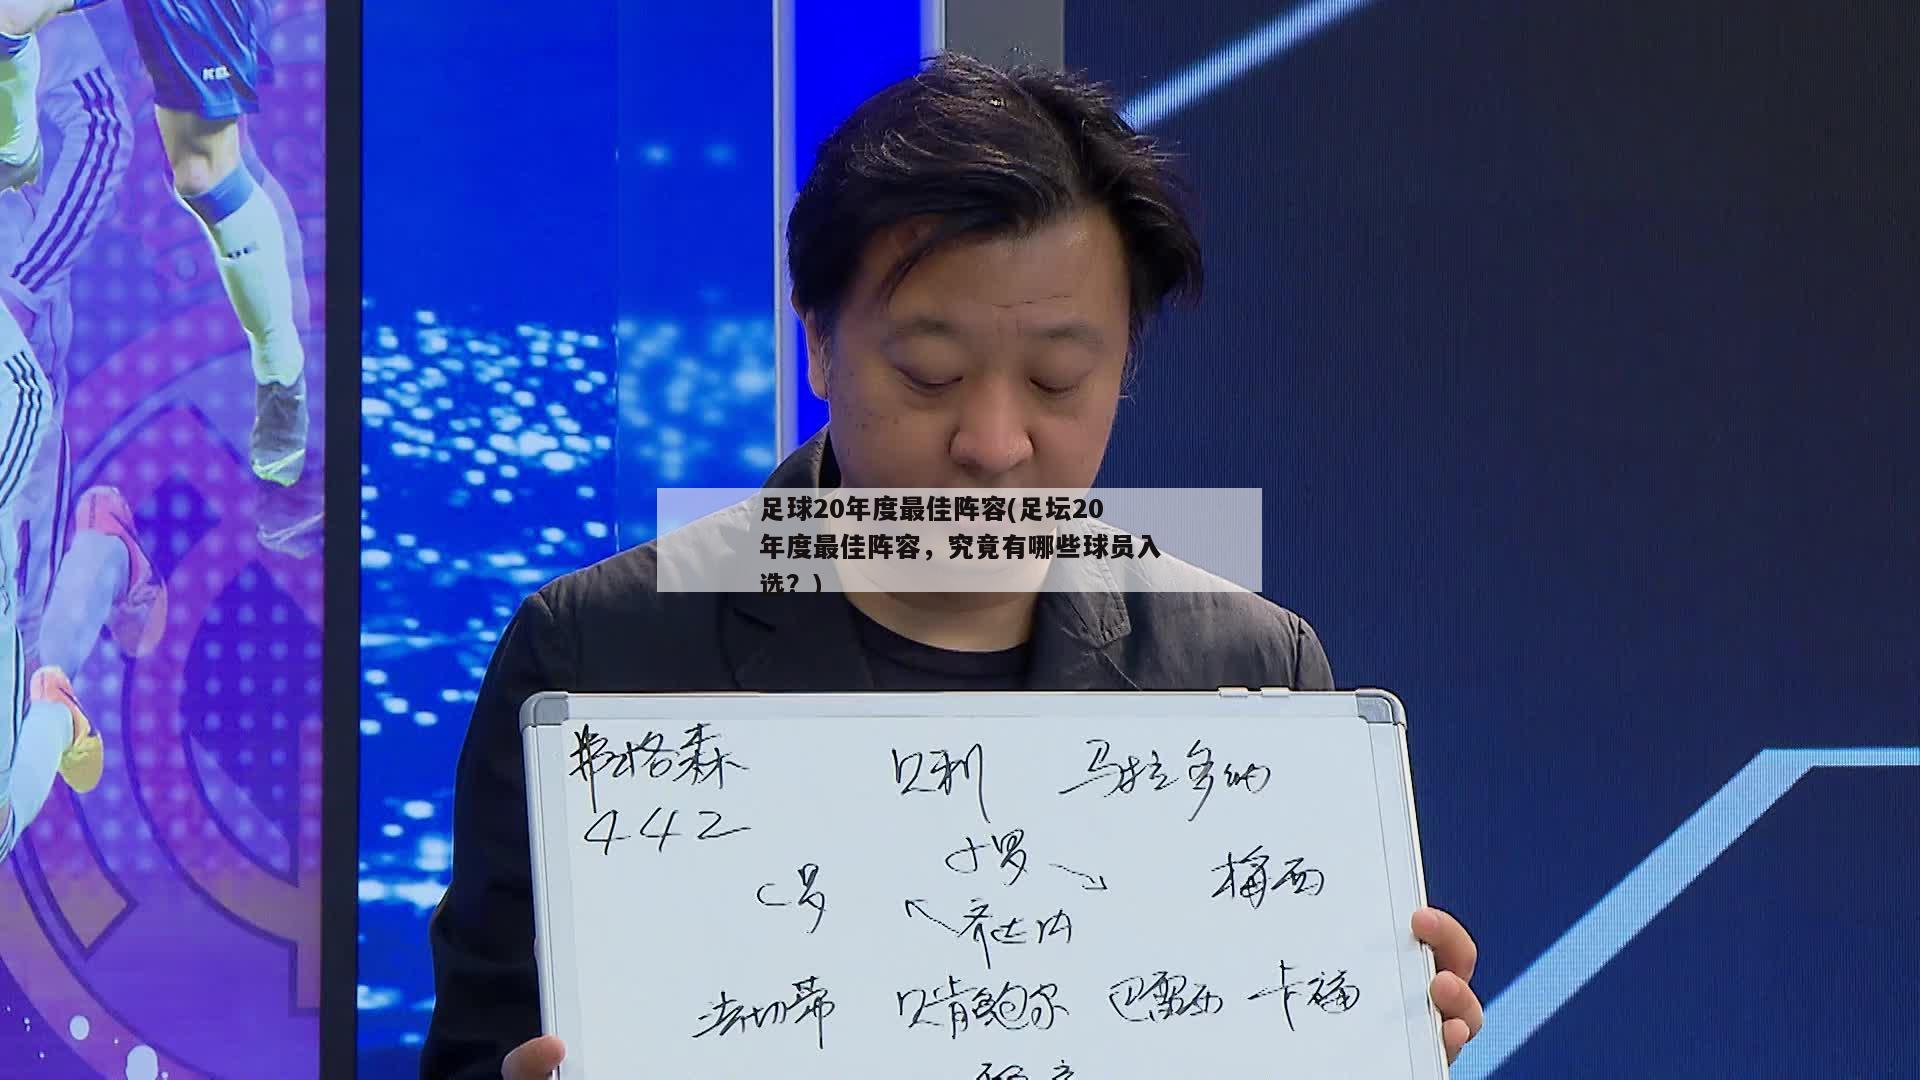 足球20年度最佳阵容(足坛20
年度最佳阵容，究竟有哪些球员入
选？)
弗格森 贝利 马拉多纳
442
小罗
C罗 梅西
齐达内
法切蒂 贝肯鲍尔 巴雷西 卡福